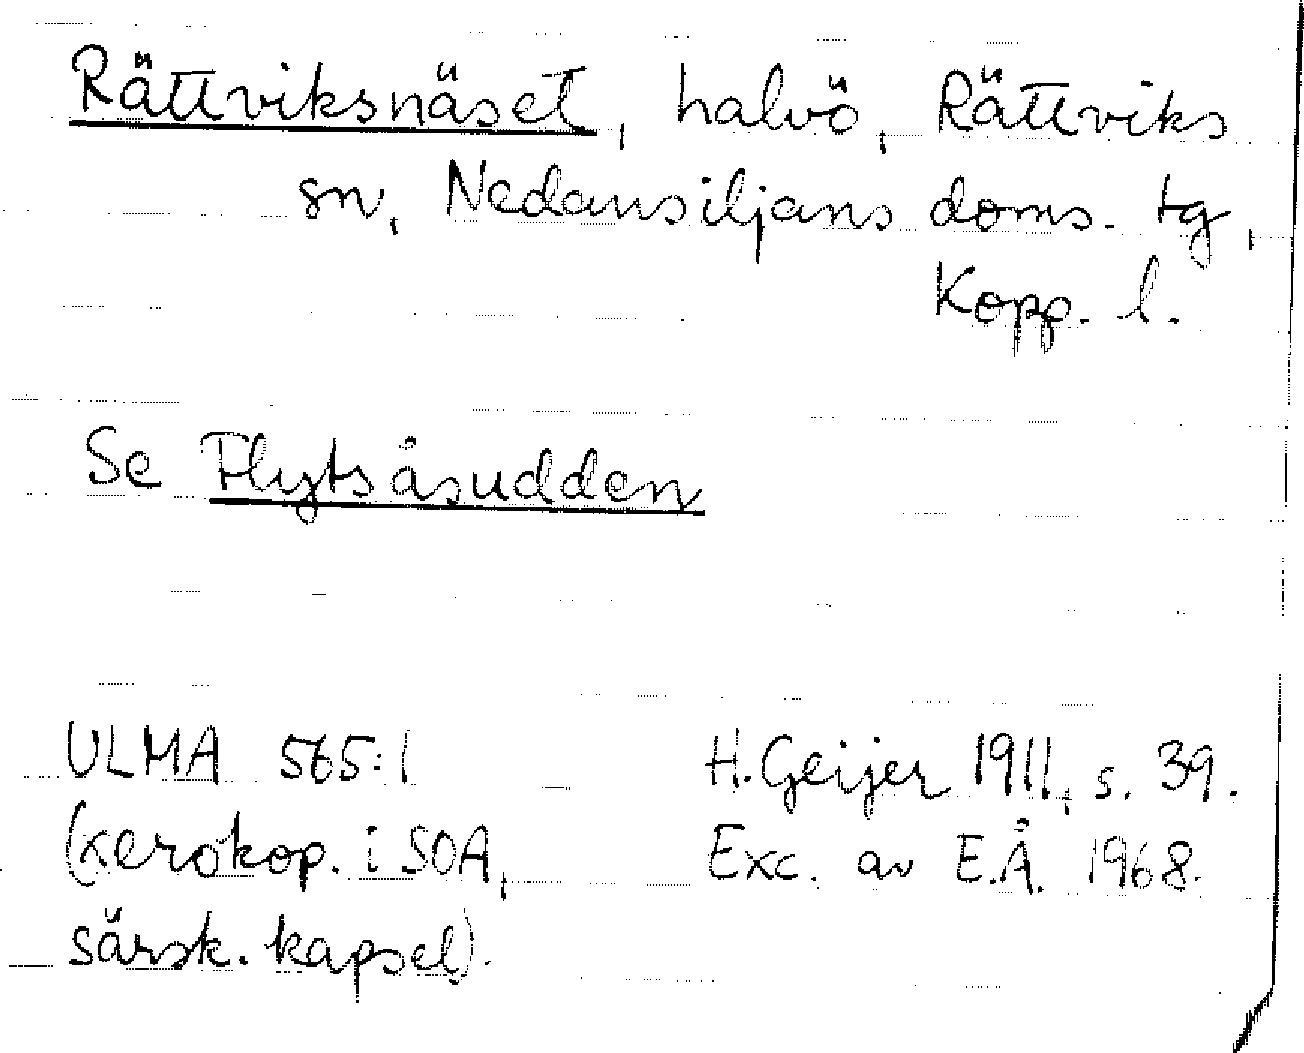 Rättviksnäset, halvö, Rättviks
sn, Nedansiljans doms. tg,
Kopp. l.
Se Flytsåsudden
ULMA 565:1
(xerokop. i SOA,
särsk. kapsel).
H. Geijer 1911, s. 39.
Exc. av E.Å. 1968.